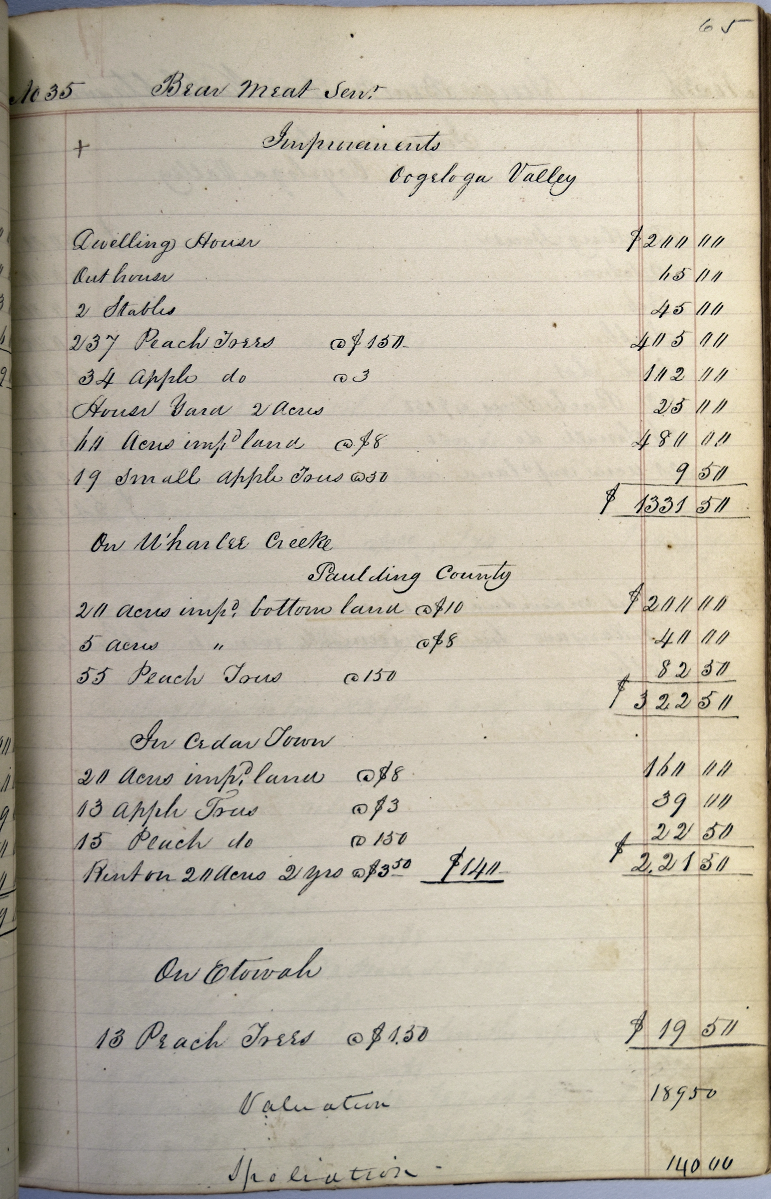 65
No 35 Bear Meat Senr
+ Improvments
Oogeloga Valley
Dwelling House $200 00
Out house 65 00
2 Stables 45 00
237 Peach Trees @ $150 405 00
34 Apple do @ 3 102 00
House Yard 2 Acres 25 00
60 Acres impd land @ $8 480 00
19 Small Apple Trees @ 50 9 50
$ 1331 50
On Wharlee Creeke
Paulding County
20 Acres impd. bottom land @ $10 $200 00
5 acres " @ $8 40 00
55 Peach Trees @ 150 82 50
$ 322 50
In Cedar Town
20 Acres impd. land @ $8 160 00
13 Apple Trees @ $3 39 00
15 Peach do @ 150 22 50
$ 2.21 50
Rent on 20 Acres 2 yrs @ $3 50 $140
On Etowah
13 Peach Trees @ $1.50 $ 19 50
Valuation 1895 0
Spoliation 140 00